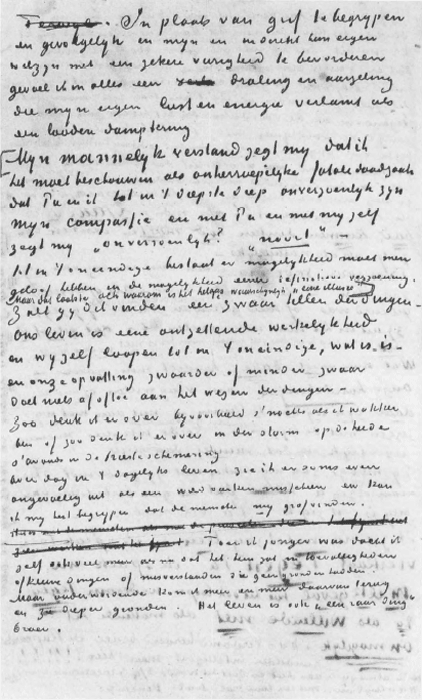 Terwijl. In plaats van gif te begrypen
en gevoegelyk en myn en en hun eigen
welzyn met een zekere vurigheid te bevorderen
gevoel ik in alles een draling en aarzeling
die myn eigen lust en energie verlamt als
een looden dampkring
Myn mannelyk verstand zegt my dat ik
het moet beschouwen als onherroepelyke fatale daadzaak
dat Pa en ik tot in 't diepste diep onverzoenlyk zyn
myn compassie en met Pa en met my zelf
zegt my "onverzoenlyk? "nooit" –
tot in 't oneindige bestaat er mogelykheid moet men
geloof hebben en de mogelykheid eener verzoening.
Maar dat laatste, ach waarom is het helaas waarschynlyk "eene illusie"
Zult gy dit vinden een zwaar tillen der dingen –
Ons leven is eene ontzettende werkelykheid
en wy zelf loopen tot in 't oneindige, wat is – is –
en onze opvatting zwaarder of minder zwaar
doet niets af of toe aan het wezen der dingen –
Zoo denk ik er over byvoorbeeld s'nachts als ik wakker
ben of zoo denk ik er over in den storm op de heide
s'avonds in de trieste schemering
over dag in 't dagelyks leven zie ik er soms even
ongevoelig uit als een wild varken misschien en kan
ik my best begrypen dat de menschen my grof vinden.
Toen ik jonger was dacht ik
zelf ook veel meer dan nu dat het hem zat in toevalligheden
of kleine dingen of misverstanden die geen grond hadden.
Maar ouder wordende kom ik meer en meer daarvan terug
en zie dieper gronden. Het leven is ook "een raar ding"
broer.